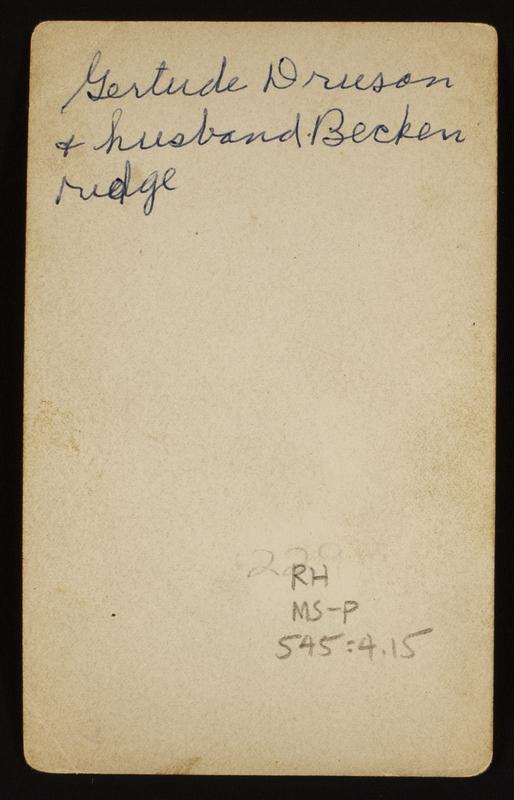 Gertude Druson
& husband. Becken
ridge
RH
MS-P
545:4.15